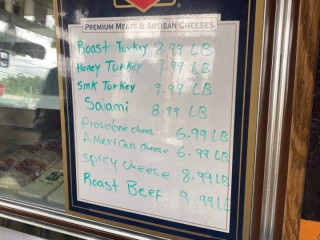 PREMIUM MEATS & ARTISAN CHEESES
Roast Turkey 8.99 LB
Honey Turkey 9.99 LB
Smk Turkey 9.99 LB
Salami 8.99 LB
Provolone chees 6.99 LB
American cheese 6.99 LB
spicy cheese 8.99 LB
Roast Beef 9.99 LB